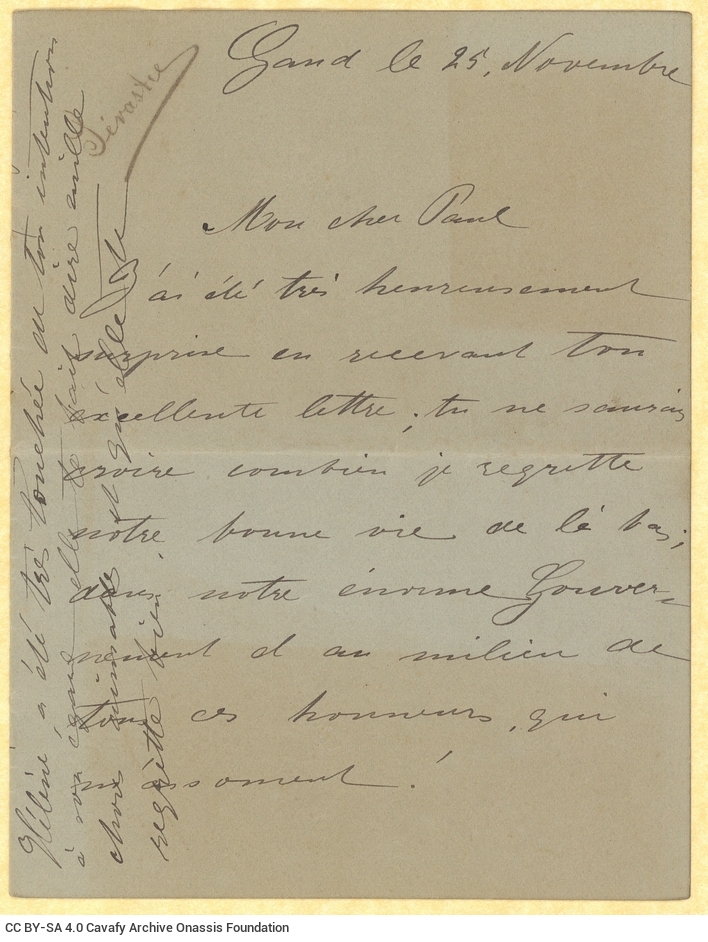 Gand le 25, Novembre
Mon cher Paul
J'ái été très heureusement
surprise en recevant ton
excellente lettre; tu ne saurais
croire combien je regrette
notre bonne vie de là bas;
dans notre énorme Gouver-
nement et au milieu de
tous ces honneurs, qui
m'assoment!
Hélène a été très touchée de ton intention
à son égard elle te fait dire mille
choses aimables et qu'elle te
regrette bien.
CC BY-SA 4.0 Cavafy Archive Onassis Foundation